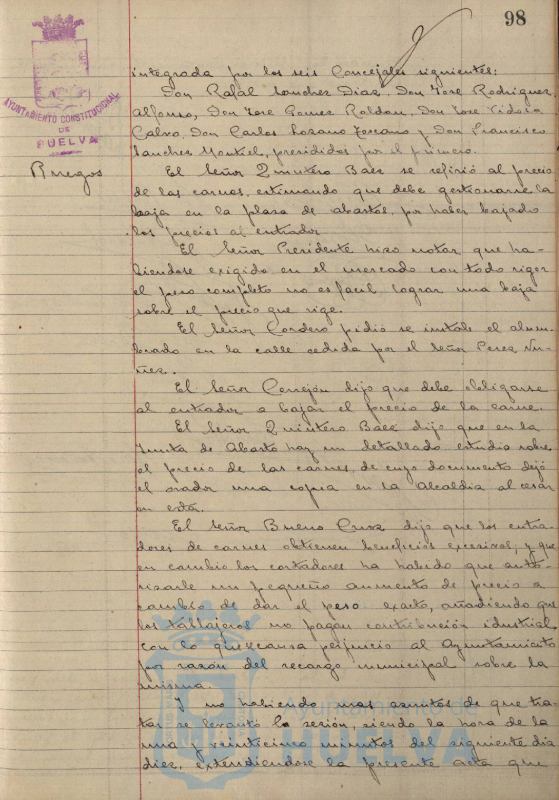 98
AYUNTAMIENTO CONSTITUCIONAL
DE
HUELVA
integrada por los seis Concejales siguientes:
Don Rafael Sanchez Diaz, Don Jose Rodriguez
Alfonso, Don Jose Gomez Roldan, Don Jose Tidosia
Calvo, Don Carlos Lozano y Don Francisco
Sanchez Montiel, presididos por el primero.
Ruegos
El Señor Quintero Baez se refirió al precio
de las carnes, estimando que debe gestionarse la
baja en la plaza de abastos, por haber bajado
los precios al entrador
El Señor Presidente hizo notar que ha-
biendose exigido en el mercado con todo rigor
el peso completo no es facil lograr una baja
sobre el precio que rige.
El Señor Cordero pidió se instale el alum-
brado en la calle cedida por el Señor Perez Nu-
ñez.
El Señor Cerrejón dijo que debe obligarse
al entrador a bajar el precio de la carne.
El Señor Quintero Baez dijo que en la
Junta de Abasto hay un detallado estudio sobre
el precio de las carnes, de cuyo documento dejó
el orador una copia en la Alcaldia al cesar
en esta.
El Señor Bueno Cruz dijo que los entra-
dores de carnes obtienen beneficios excesivos, y que
en cambio los cortadores ha habido que auto-
rizarle un pequeño aumento de precio a
cambio de dar el peso exacto, añadiendo que
los tablajeros no pagan contribución idustrial
con lo que causa perjuicio al Ayuntamiento
por razón del recargo municipal sobre la
misma.
Y no habiendo mas asuntos de que tra-
tar se levantó la sesión, siendo la hora de la
una y veinticinco minutos del siguiente dia
diez, extendiendose la presente acta que
Ayuntamiento de
HUELVA